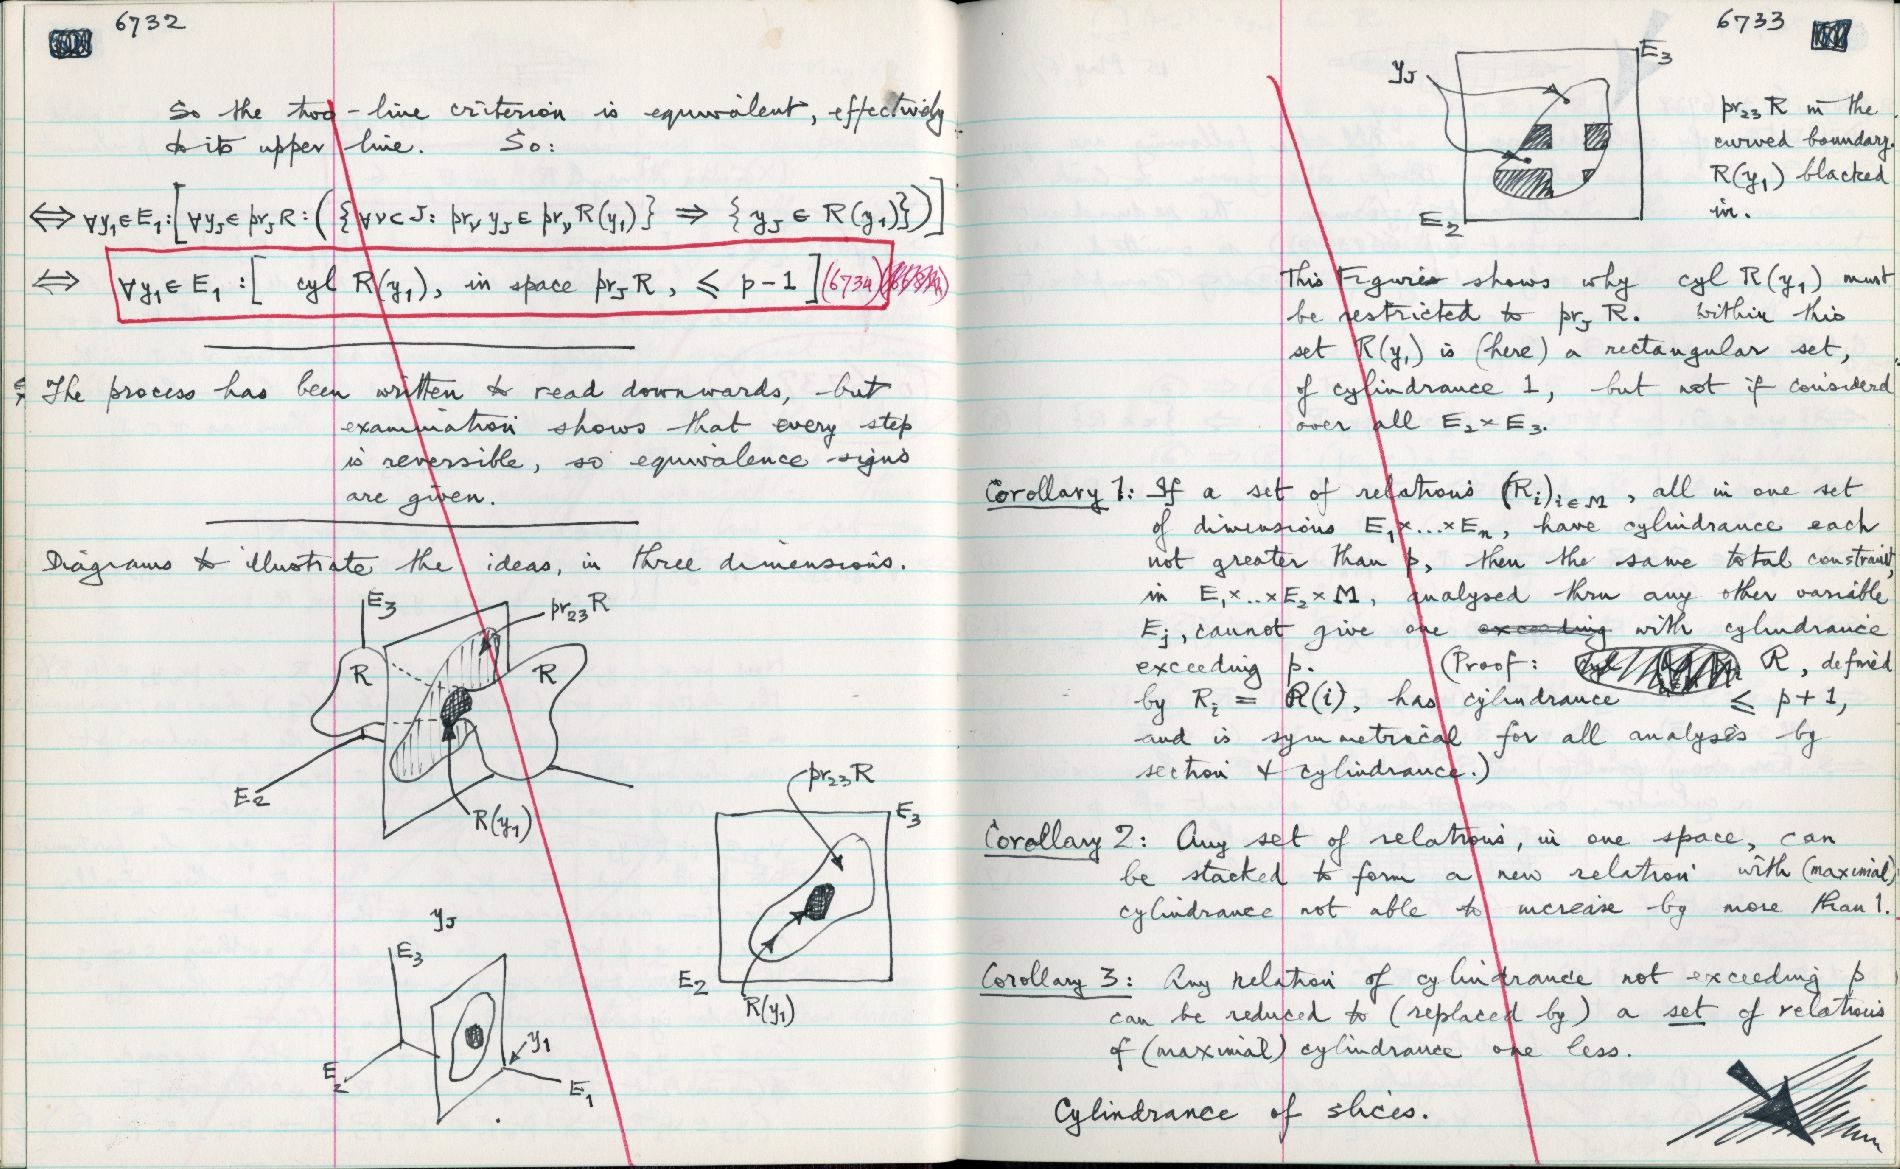 6732
So the two-line criterion is equivalent, effectively
to its upper line. So:
⟺ ∀y₁∈E₁:[∀y_J∈pr_J R:({∀ν⊂J: pr_ν y_J ∈ pr_ν R(y₁)} ⇒ {y_J ∈ R(y₁)})]
⟺ ∀y₁∈E₁:[ cyl R(y₁), in space pr_J R, ≤ p-1 ] (6734)
The process has been written to read downwards, but
examination shows that every step
is reversible, so equivalence signs
are given.
Diagrams to illustrate the ideas, in three dimensions.
E₃
pr₂₃R
R
R
E₂
R(y₁)
pr₂₃R
E₃
E₂
R(y₁)
y_J
E₃
E₂
y₁
E₁
6733
E₃
y_J
E₂
pr₂₃R in the
curved boundary.
R(y₁) blacked
in.
This Figure shows why cyl R(y₁) must
be restricted to pr_J R. Within this
set R(y₁) is (here) a rectangular set,
of cylindrance 1, but not if considerd
over all E₂×E₃.
Corollary 1: If a set of relations (Rᵢ)ᵢ∈M, all in one set
of dimensions E₁×...×Eₙ, have cylindrance each
not greater than p, then the same total constraint,
in E₁×..×E₂×M, analysed thru any other variable
Eⱼ, cannot give one exceeding with cylindrance
exceeding p. (Proof: R, defined
by Rᵢ = R(i), has cylindrance ≤ p+1,
and is symmetrical for all analysis by
section & cylindrance.)
Corollary 2: Any set of relations, in one space, can
be stacked to form a new relation with (maximal)
cylindrance not able to increase by more than 1.
Corollary 3: Any relation of cylindrance not exceeding p
can be reduced to (replaced by) a set of relations
of (maximal) cylindrance one less.
Cylindrance of slices.